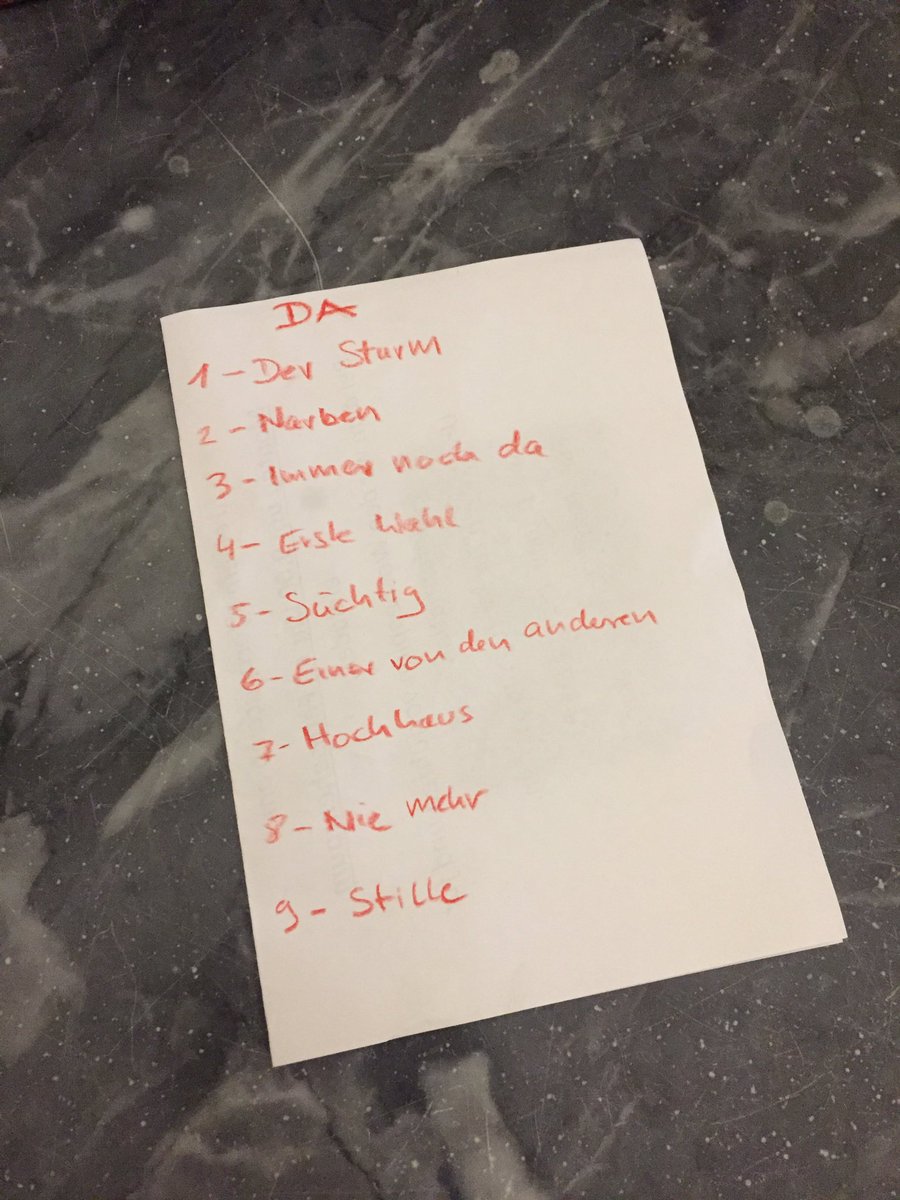 DA
1 - Der Sturm
2 - Narben
3 - Immer noch da
4 - Erste Wahl
5 - Süchtig
6 - Einer von den anderen
7 - Hochhaus
8 - Nie mehr
9 - Stille